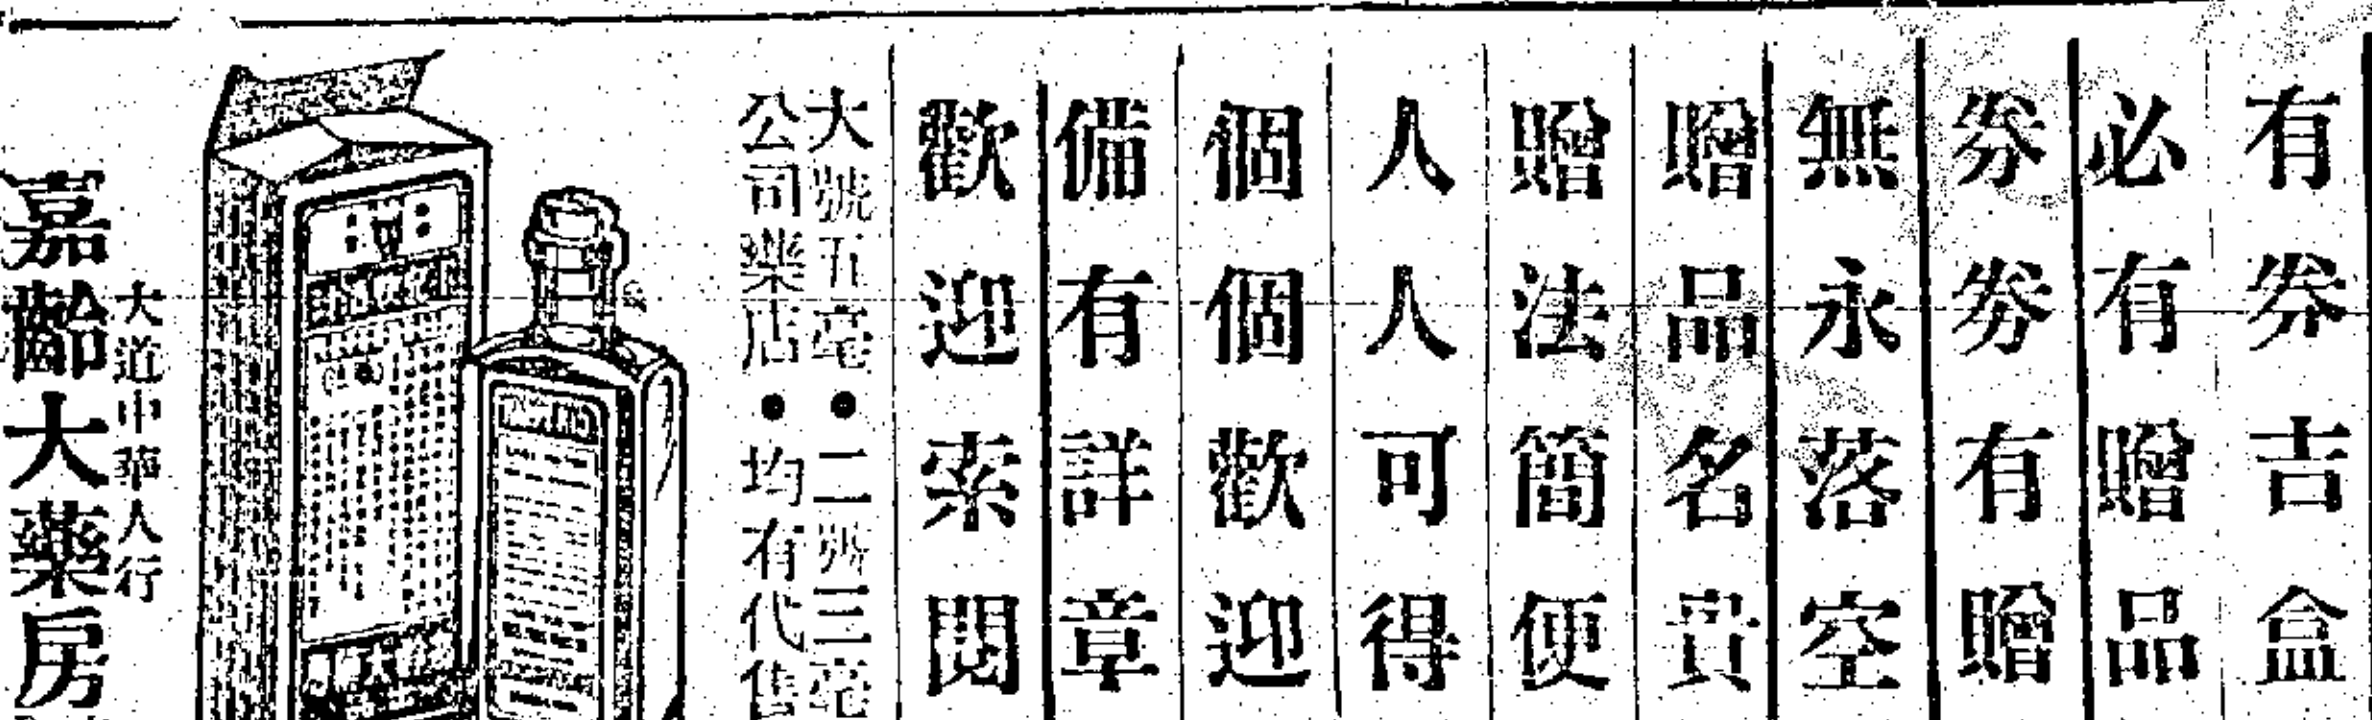 有券吉盒
必有贈品
券券有贈
無永落空
贈品名貴
贈法簡便
人人可得
個個歡迎
備有詳章
歡迎索閱
大號五毫•二號三毫
公司藥店•均有代售
大道中華人行
嘉齡大藥房